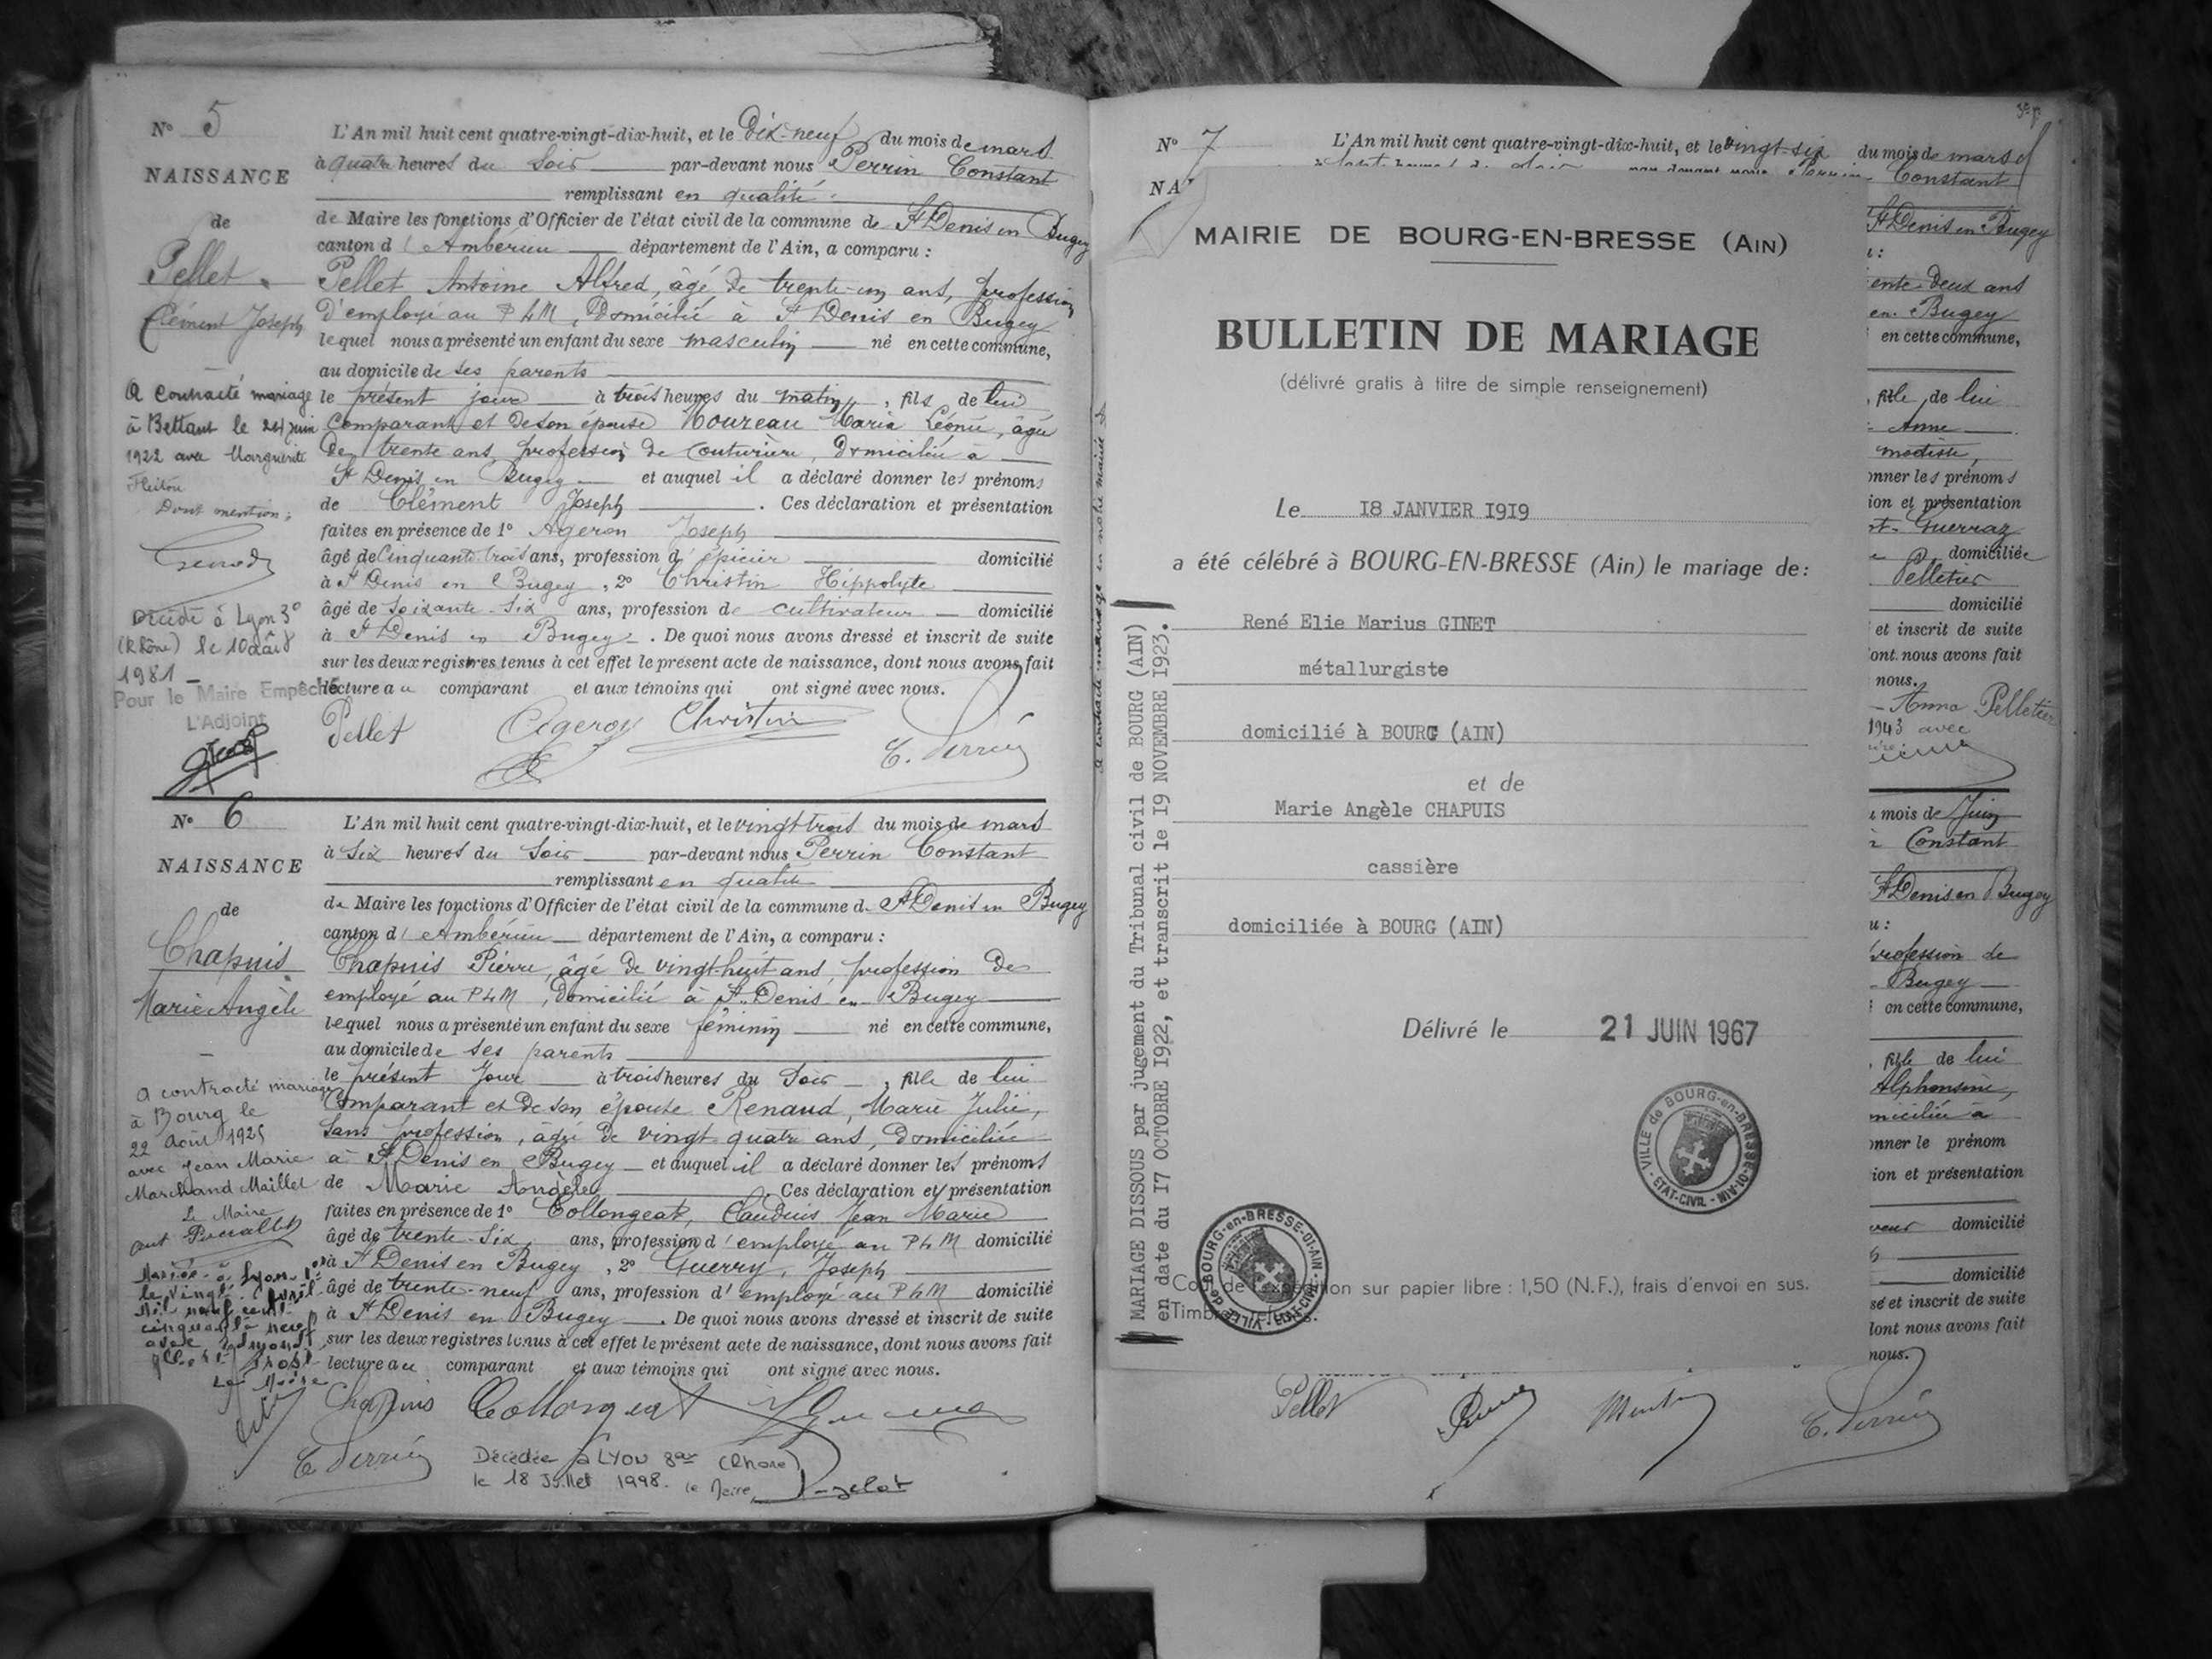 N° 5
NAISSANCE
de
Pellet
Clément Joseph
A contracté mariage
à Bettant le 24 juin
1922 avec Marguerite
Dont mention :
Décédé à Lyon 3e
(Rhône) le 10 août
1981 -
Pour le Maire Empêché
L'Adjoint
L'An mil huit cent quatre-vingt-dix-huit, et le Dix-neuf du mois de mars
à quatre heures du Soir par-devant nous Perrin Constant
remplissant en qualité
de Maire les fonctions d'Officier de l'état civil de la commune de St Denis en Bugey
canton d'Ambérieu département de l'Ain, a comparu :
Pellet Antoine Alfred, âgé de trente-un ans, profession
d'employé au P L M, Domicilié à St Denis en Bugey
lequel nous a présenté un enfant du sexe masculin né en cette commune,
au domicile de ses parents
le présent jour à trois heures du matin, fils de lui
Comparant et de son épouse Moureau Maria Léonie, âgée
De trente ans, profession de couturière, Domiciliée à
St Denis en Bugey et auquel il a déclaré donner les prénoms
de Clément Joseph. Ces déclaration et présentation
faites en présence de 1° Ageron Joseph
âgé de Cinquante-trois ans, profession d'épicier domicilié
à St Denis en Bugey, 2° Christin Hippolyte
âgé de soixante-six ans, profession de cultivateur domicilié
à St Denis en Bugey. De quoi nous avons dressé et inscrit de suite
sur les deux registres tenus à cet effet le présent acte de naissance, dont nous avons fait
lecture au comparant et aux témoins qui ont signé avec nous.
Pellet Ageron Christin
C. Perrin
N° 6
NAISSANCE
de
Chapuis
Marie Angèle
A contracté mariage
à Bourg le
22 Août 1925
avec Jean Marie
Marchand Maillet
Le Maire
Mariée à Lyon
le vingt Avril
mil neuf cent
cinquante neuf
avec
Le Maire
L'An mil huit cent quatre-vingt-dix-huit, et le vingt-trois du mois de mars
à Six heures du Soir par-devant nous Perrin Constant
remplissant en qualité
de Maire les fonctions d'Officier de l'état civil de la commune d. St Denis en Bugey
canton d'Ambérieu département de l'Ain, a comparu :
Chapuis Pierre, âgé de vingt-huit ans, profession De
employé au P L M, Domicilié à St Denis en Bugey
lequel nous a présenté un enfant du sexe féminin né en cette commune,
au domicile de ses parents
le présent Jour à trois heures du Soir, fille de lui
Comparant et de son épouse Renaud, Marie Julie,
Sans profession, âgée de vingt quatre ans, Domiciliée
à St Denis en Bugey et auquel il a déclaré donner les prénoms
de Marie Angèle. Ces déclaration et présentation
faites en présence de 1° Collongeat, Claudius Jean Marie
âgé de trente-six ans, profession d'employé au P L M domicilié
à St Denis en Bugey, 2° Guerry, Joseph
âgé de trente-neuf ans, profession d'employé au P L M domicilié
à St Denis en Bugey. De quoi nous avons dressé et inscrit de suite
sur les deux registres tenus à cet effet le présent acte de naissance, dont nous avons fait
lecture au comparant et aux témoins qui ont signé avec nous.
Chapuis Collongeat
C. Perrin
Décédée à LYON 8e (Rhône)
le 18 Juillet 1998. le Maire,
N° 7
L'An mil huit cent quatre-vingt-dix-huit, et le vingt-six du mois de mars
NA
MAIRIE DE BOURG-EN-BRESSE (AIN)
BULLETIN DE MARIAGE
(délivré gratis à titre de simple renseignement)
Le 18 JANVIER 1919
a été célébré à BOURG-EN-BRESSE (Ain) le mariage de :
René Elie Marius GINET
métallurgiste
domicilié à BOURG (AIN)
et de
Marie Angèle CHAPUIS
cassière
domiciliée à BOURG (AIN)
Délivré le 21 JUIN 1967
VILLE de BOURG-en-BRESSE-01-AIN - ETAT-CIVIL -
VILLE de BOURG-en-BRESSE-01-AIN - ETAT-CIVIL -
sur papier libre : 1,50 (N.F.), frais d'envoi en sus.
MARIAGE DISSOUS par jugement du Tribunal civil de BOURG (AIN)
en date du 17 OCTOBRE 1922, et transcrit le 19 NOVEMBRE 1923.
Constant
St Denis en Bugey
ente-deux ans
en Bugey
en cette commune,
, fille de lui
Anne
modiste,
onner les prénoms
ion et présentation
Guerraz
domiciliée
Pelletier
domicilié
et inscrit de suite
ont nous avons fait
nous.
Anna Pelletier
1943 avec
u mois de Juin
Constant
St Denis en Bugey
u :
profession de
Bugey
en cette commune,
, fille de lui
Alphonsine,
miciliée à
nner le prénom
ion et présentation
domicilié
domicilié
sé et inscrit de suite
dont nous avons fait
nous.
Pellet
C. Perrin